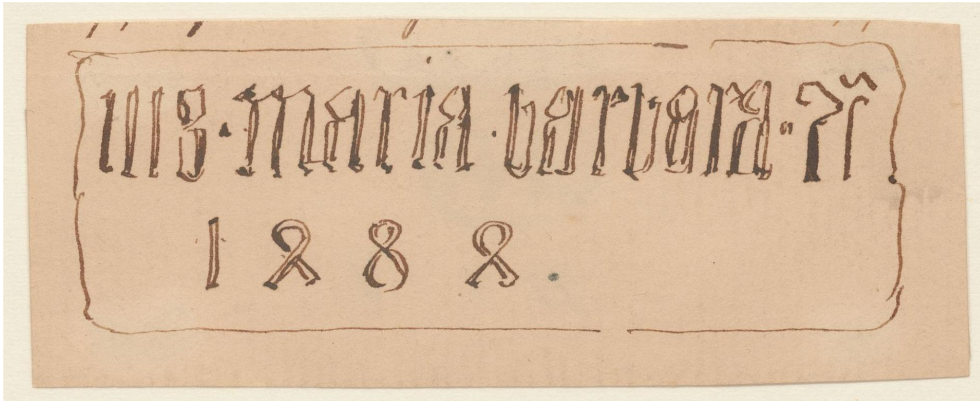 ihs · maria · barbara ·
1484